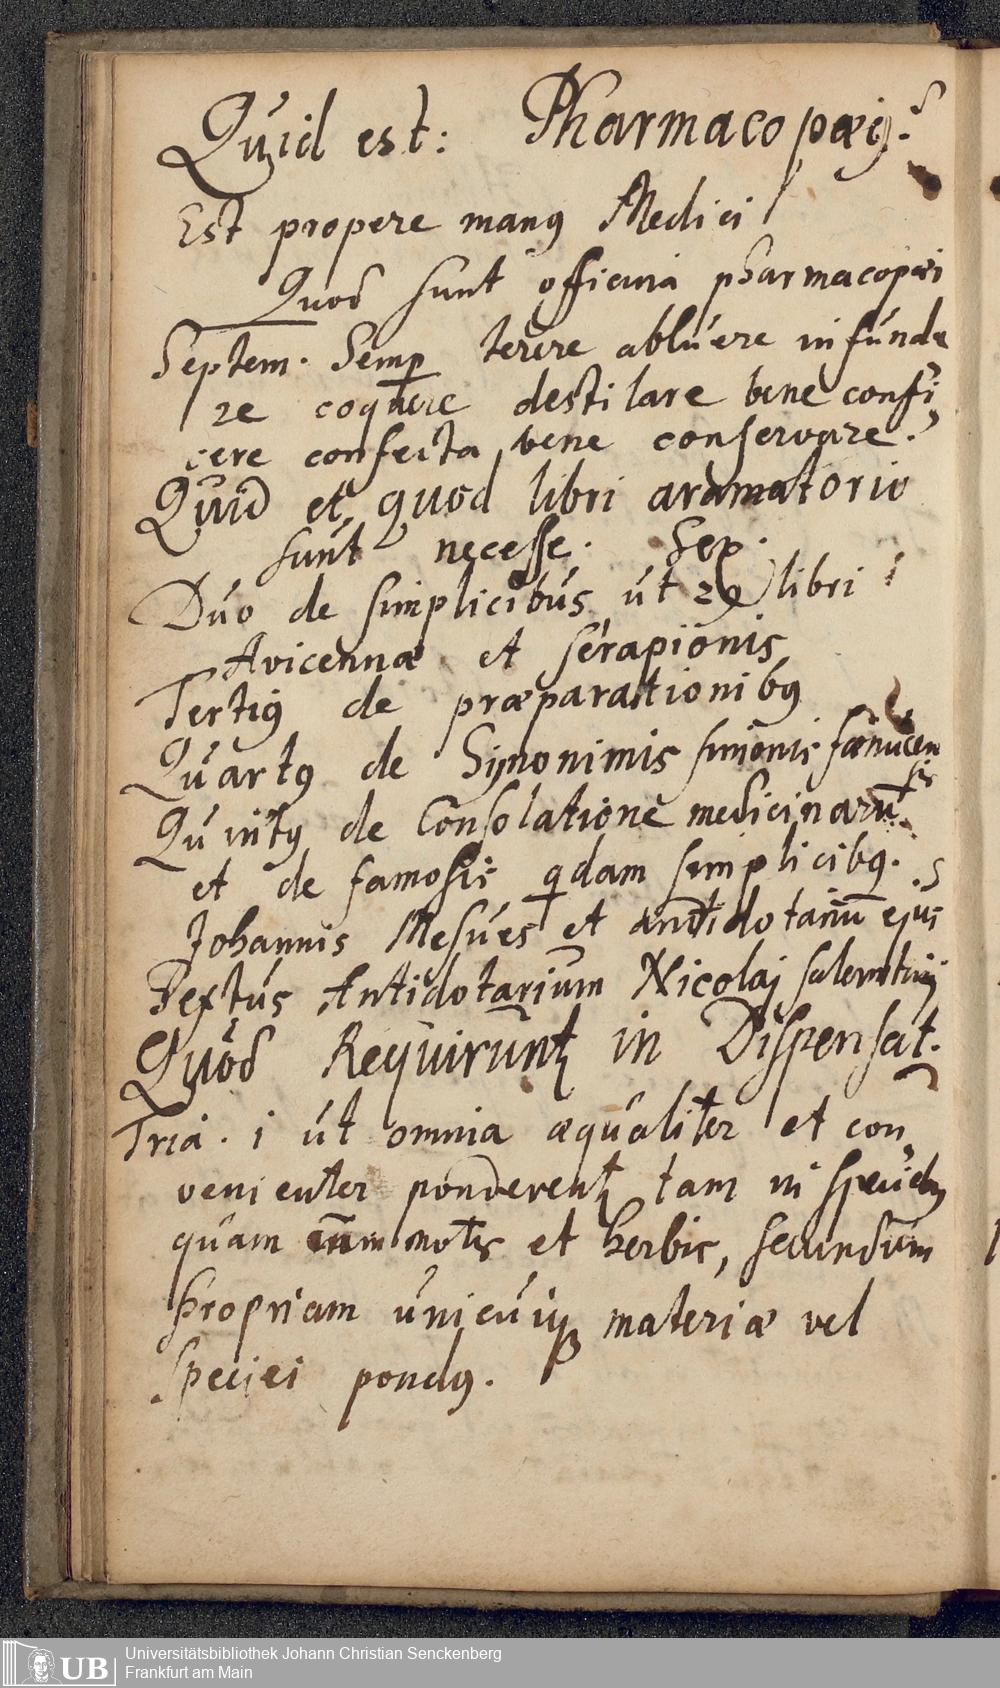 Quid est: Pharmacopæiꝰ?
Est propere manꝰ Medici
Quod sunt officinia pharmacopæi
Septem. Semꝑ terere abluere infunde
re coquere destilare bene confi
cere confecta bene conservare.
Quid et quod libri aromatorio
sunt necesse. Sex.
Duo de simplicibus ut libri
Avicennæ et serapionis
Tertiꝰ de præparationibꝰ
Quartꝰ de Synonimis simonis januen
sis
Quintꝰ de Consolatione medicinarū
et de famosis qdam simplicibꝰ.
Johannis Mesues et antidotarium ejus
Sextus Antidotarium Nicolaj salernitnij
Quod Requirunt in Dispensat.
Tria. i ut omnia æqualiter et con
venienter ponderent tam in speciebꝰ
quam et herbis, secundum
propriam unicuiqꝫ materiæ vel
speciei pondꝰ.
UB
Universitätsbibliothek Johann Christian Senckenberg
Frankfurt am Main